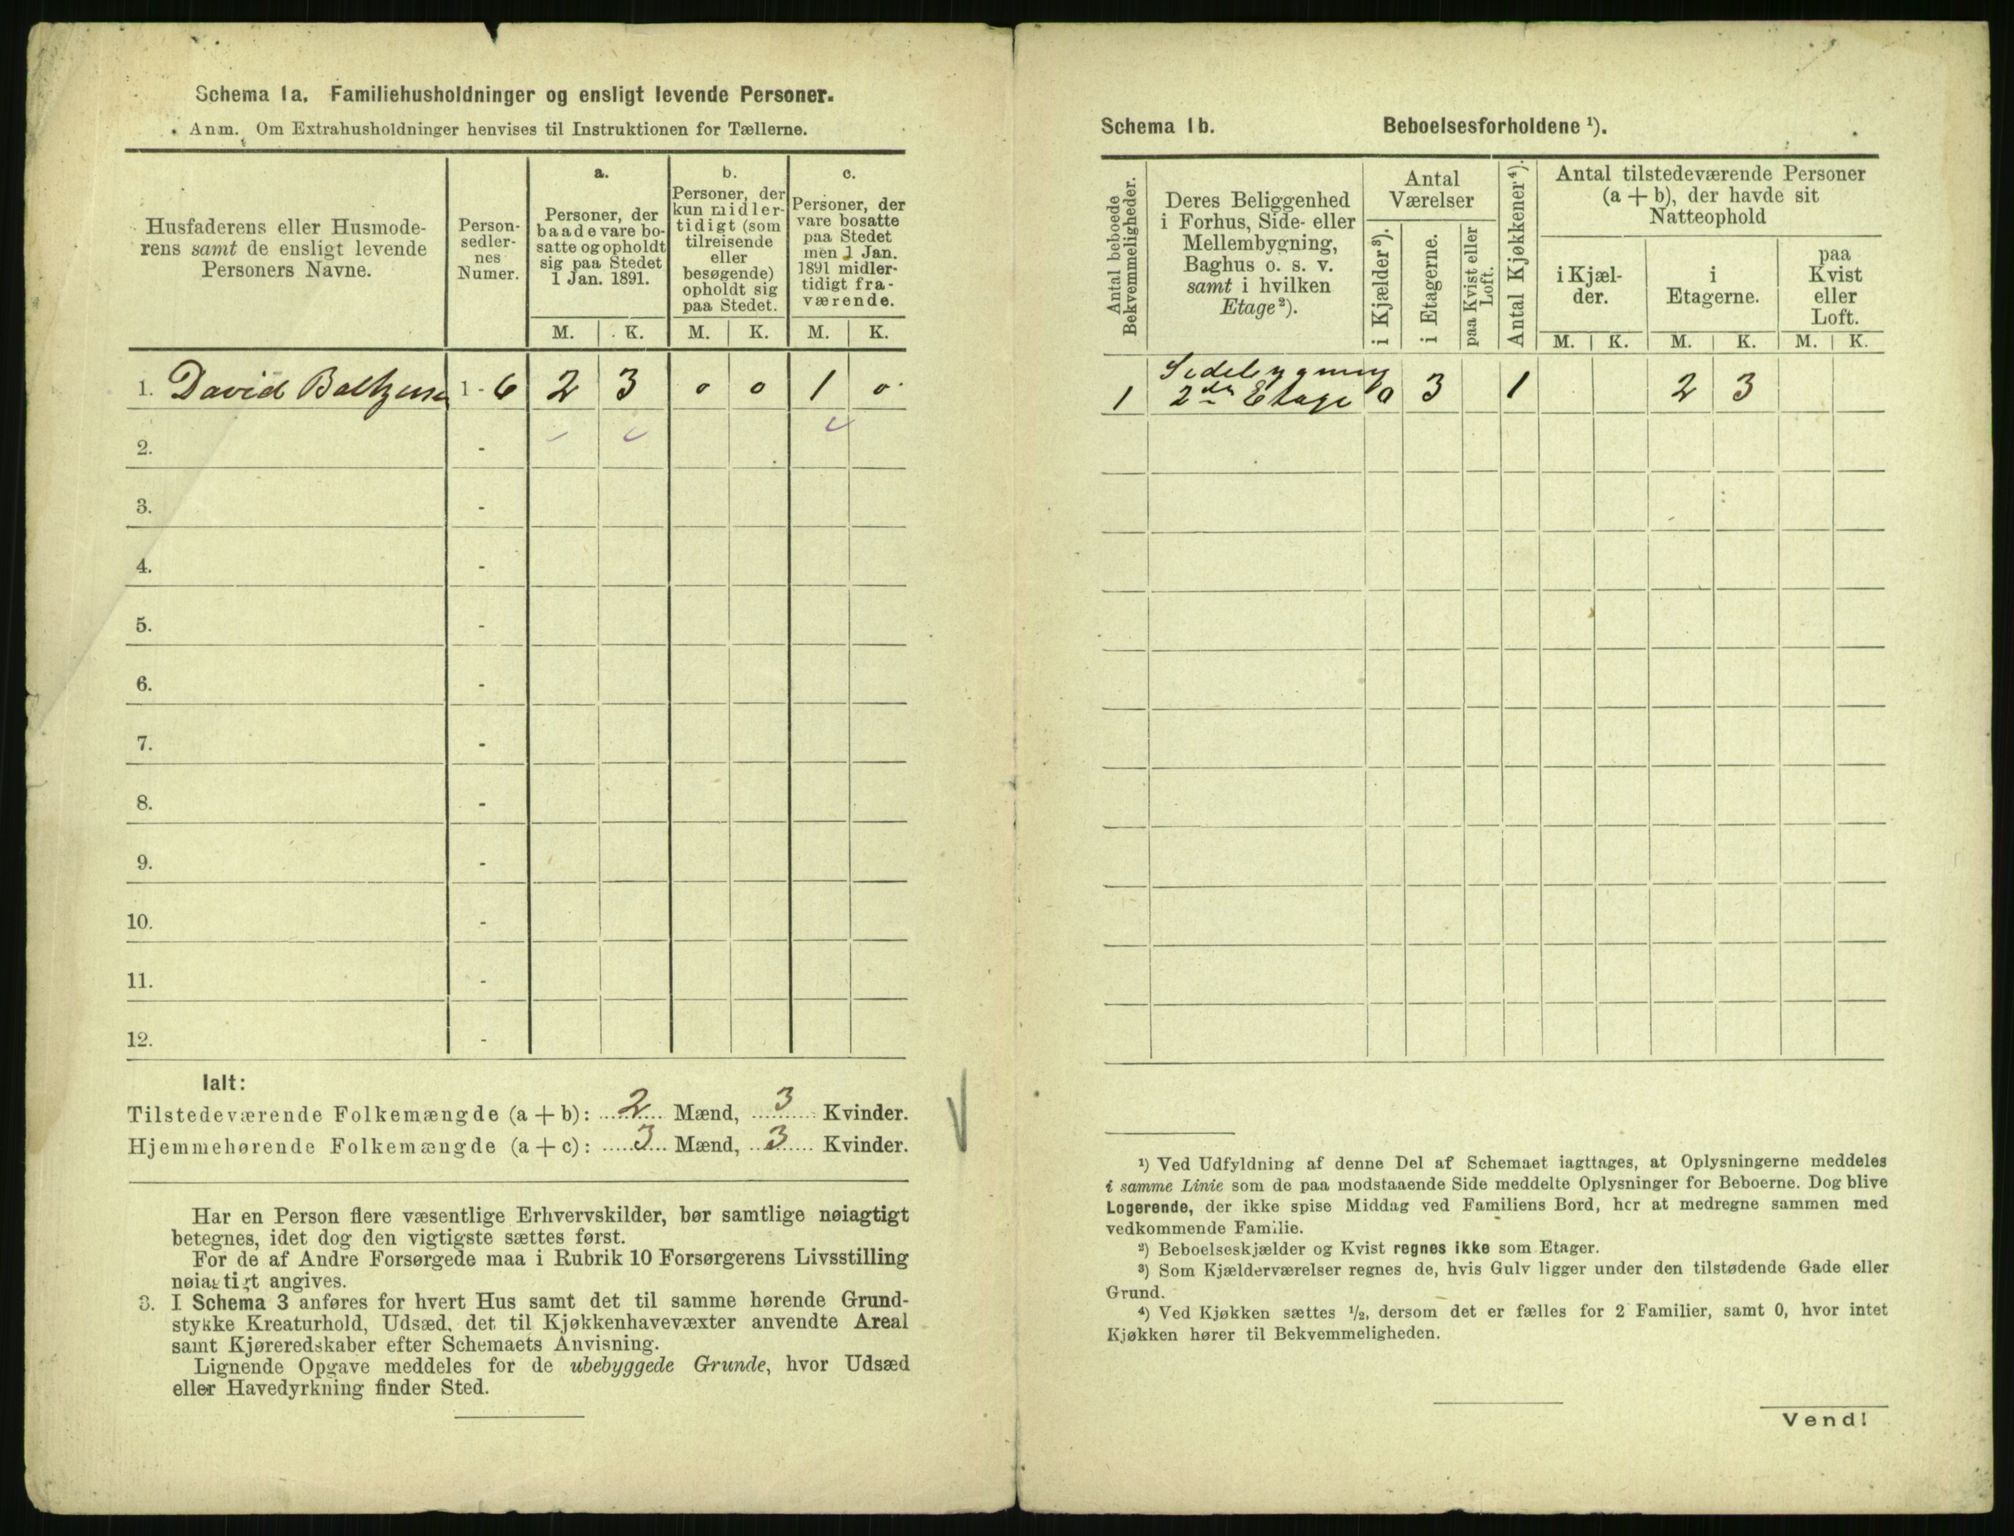 Schema 1a. Familiehusholdninger og ensligt levende Personer.
Anm. Om Extrahusholdninger henvises til Instruktionen for Tællerne.
Husfaderens eller Husmode-
rens samt de ensligt levende
Personers Navne.
Person-
sedler-
nes
Numer.
a.
Personer, der
baade vare bo-
satte og opholdt
sig paa Stedet
1 Jan. 1891.
b.
Personer, der
kun midler-
tidigt (som
tilreisende
eller
besøgende)
opholdt sig
paa Stedet.
c.
Personer, der
vare bosatte
paa Stedet
men 1 Jan.
1891 midler-
tidigt fra-
værende.
M. K. M. K. M. K.
1. David Baltzersen 1 - 6 2 3 0 0 1 0
2. -
3. -
4. -
5. -
6. -
7. -
8. -
9. -
10. -
11. -
12. -
Ialt:
Tilstedeværende Folkemængde (a + b): 2 Mænd, 3 Kvinder.
Hjemmehørende Folkemængde (a + c): 3 Mænd, 3 Kvinder.
Har en Person flere væsentlige Erhvervskilder, bør samtlige nøiagtigt
betegnes, idet dog den vigtigste sættes først.
For de af Andre Forsørgede maa i Rubrik 10 Forsørgerens Livsstilling
nøiagtigt angives.
3. I Schema 3 anføres for hvert Hus samt det til samme hørende Grund-
stykke Kreaturhold, Udsæd, det til Kjøkkenhavevæxter anvendte Areal
samt Kjøreredskaber efter Schemaets Anvisning.
Lignende Opgave meddeles for de ubebyggede Grunde, hvor Udsæd
eller Havedyrkning finder Sted.
Schema 1b. Beboelsesforholdene ¹).
Antal beboede
Bekvemmeligheder.
Deres Beliggenhed
i Forhus, Side- eller
Mellembygning,
Baghus o. s. v.
samt i hvilken
Etage²).
Antal
Værelser
i Kjælder³).
i Etagerne.
paa Kvist eller
Loft.
Antal Kjøkkener⁴).
Antal tilstedeværende Personer
(a + b), der havde sit
Natteophold
i Kjæl-
der.
i
Etagerne.
paa
Kvist
eller
Loft.
M. K. M. K. M. K.
Sidebygning
1 2den Etage 0 3 1 2 3
¹) Ved Udfyldning af denne Del af Schemaet iagttages, at Oplysningerne meddeles
i samme Linie som de paa modstaaende Side meddelte Oplysninger for Beboerne. Dog blive
Logerende, der ikke spise Middag ved Familiens Bord, her at medregne sammen med
vedkommende Familie.
²) Beboelseskjælder og Kvist regnes ikke som Etager.
³) Som Kjælderværelser regnes de, hvis Gulv ligger under den tilstødende Gade eller
Grund.
⁴) Ved Kjøkken sættes ½, dersom det er fælles for 2 Familier, samt 0, hvor intet
Kjøkken hører til Bekvemmeligheden.
Vend!